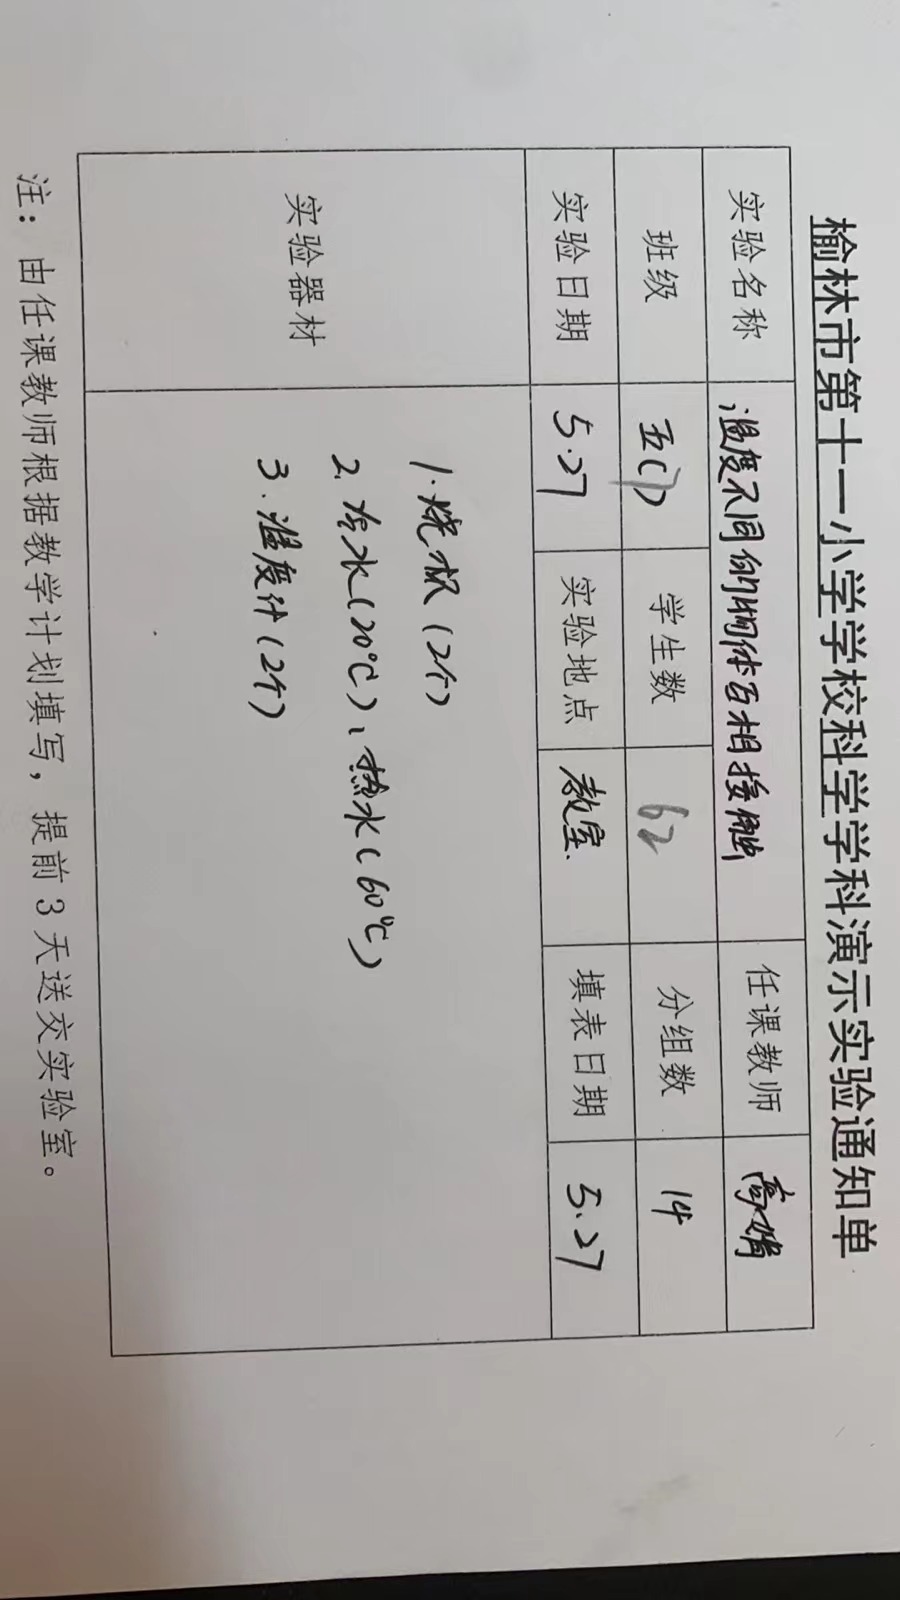 榆林市第十一小学学校科学学科演示实验通知单
实验名称 温度不同的物体互相接触 任课教师 高娟
班级 五() 学生数 62 分组数 14
实验日期 5.27 实验地点 教室 填表日期 5.27
实验器材
1.烧杯(2个)
2.冷水(20℃)、热水(60℃)
3.温度计(2个)
注：由任课教师根据教学计划填写，提前3天送交实验室。